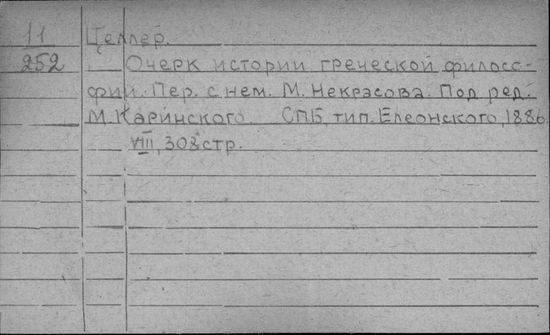 11 Целлер.
252 Очерк истории греческой филосо-
фии. Пер. с нем. М. Некрасова. Под ред.
М. Каринского. СПБ, тип. Елеонского, 1886.
VIII, 308 стр.